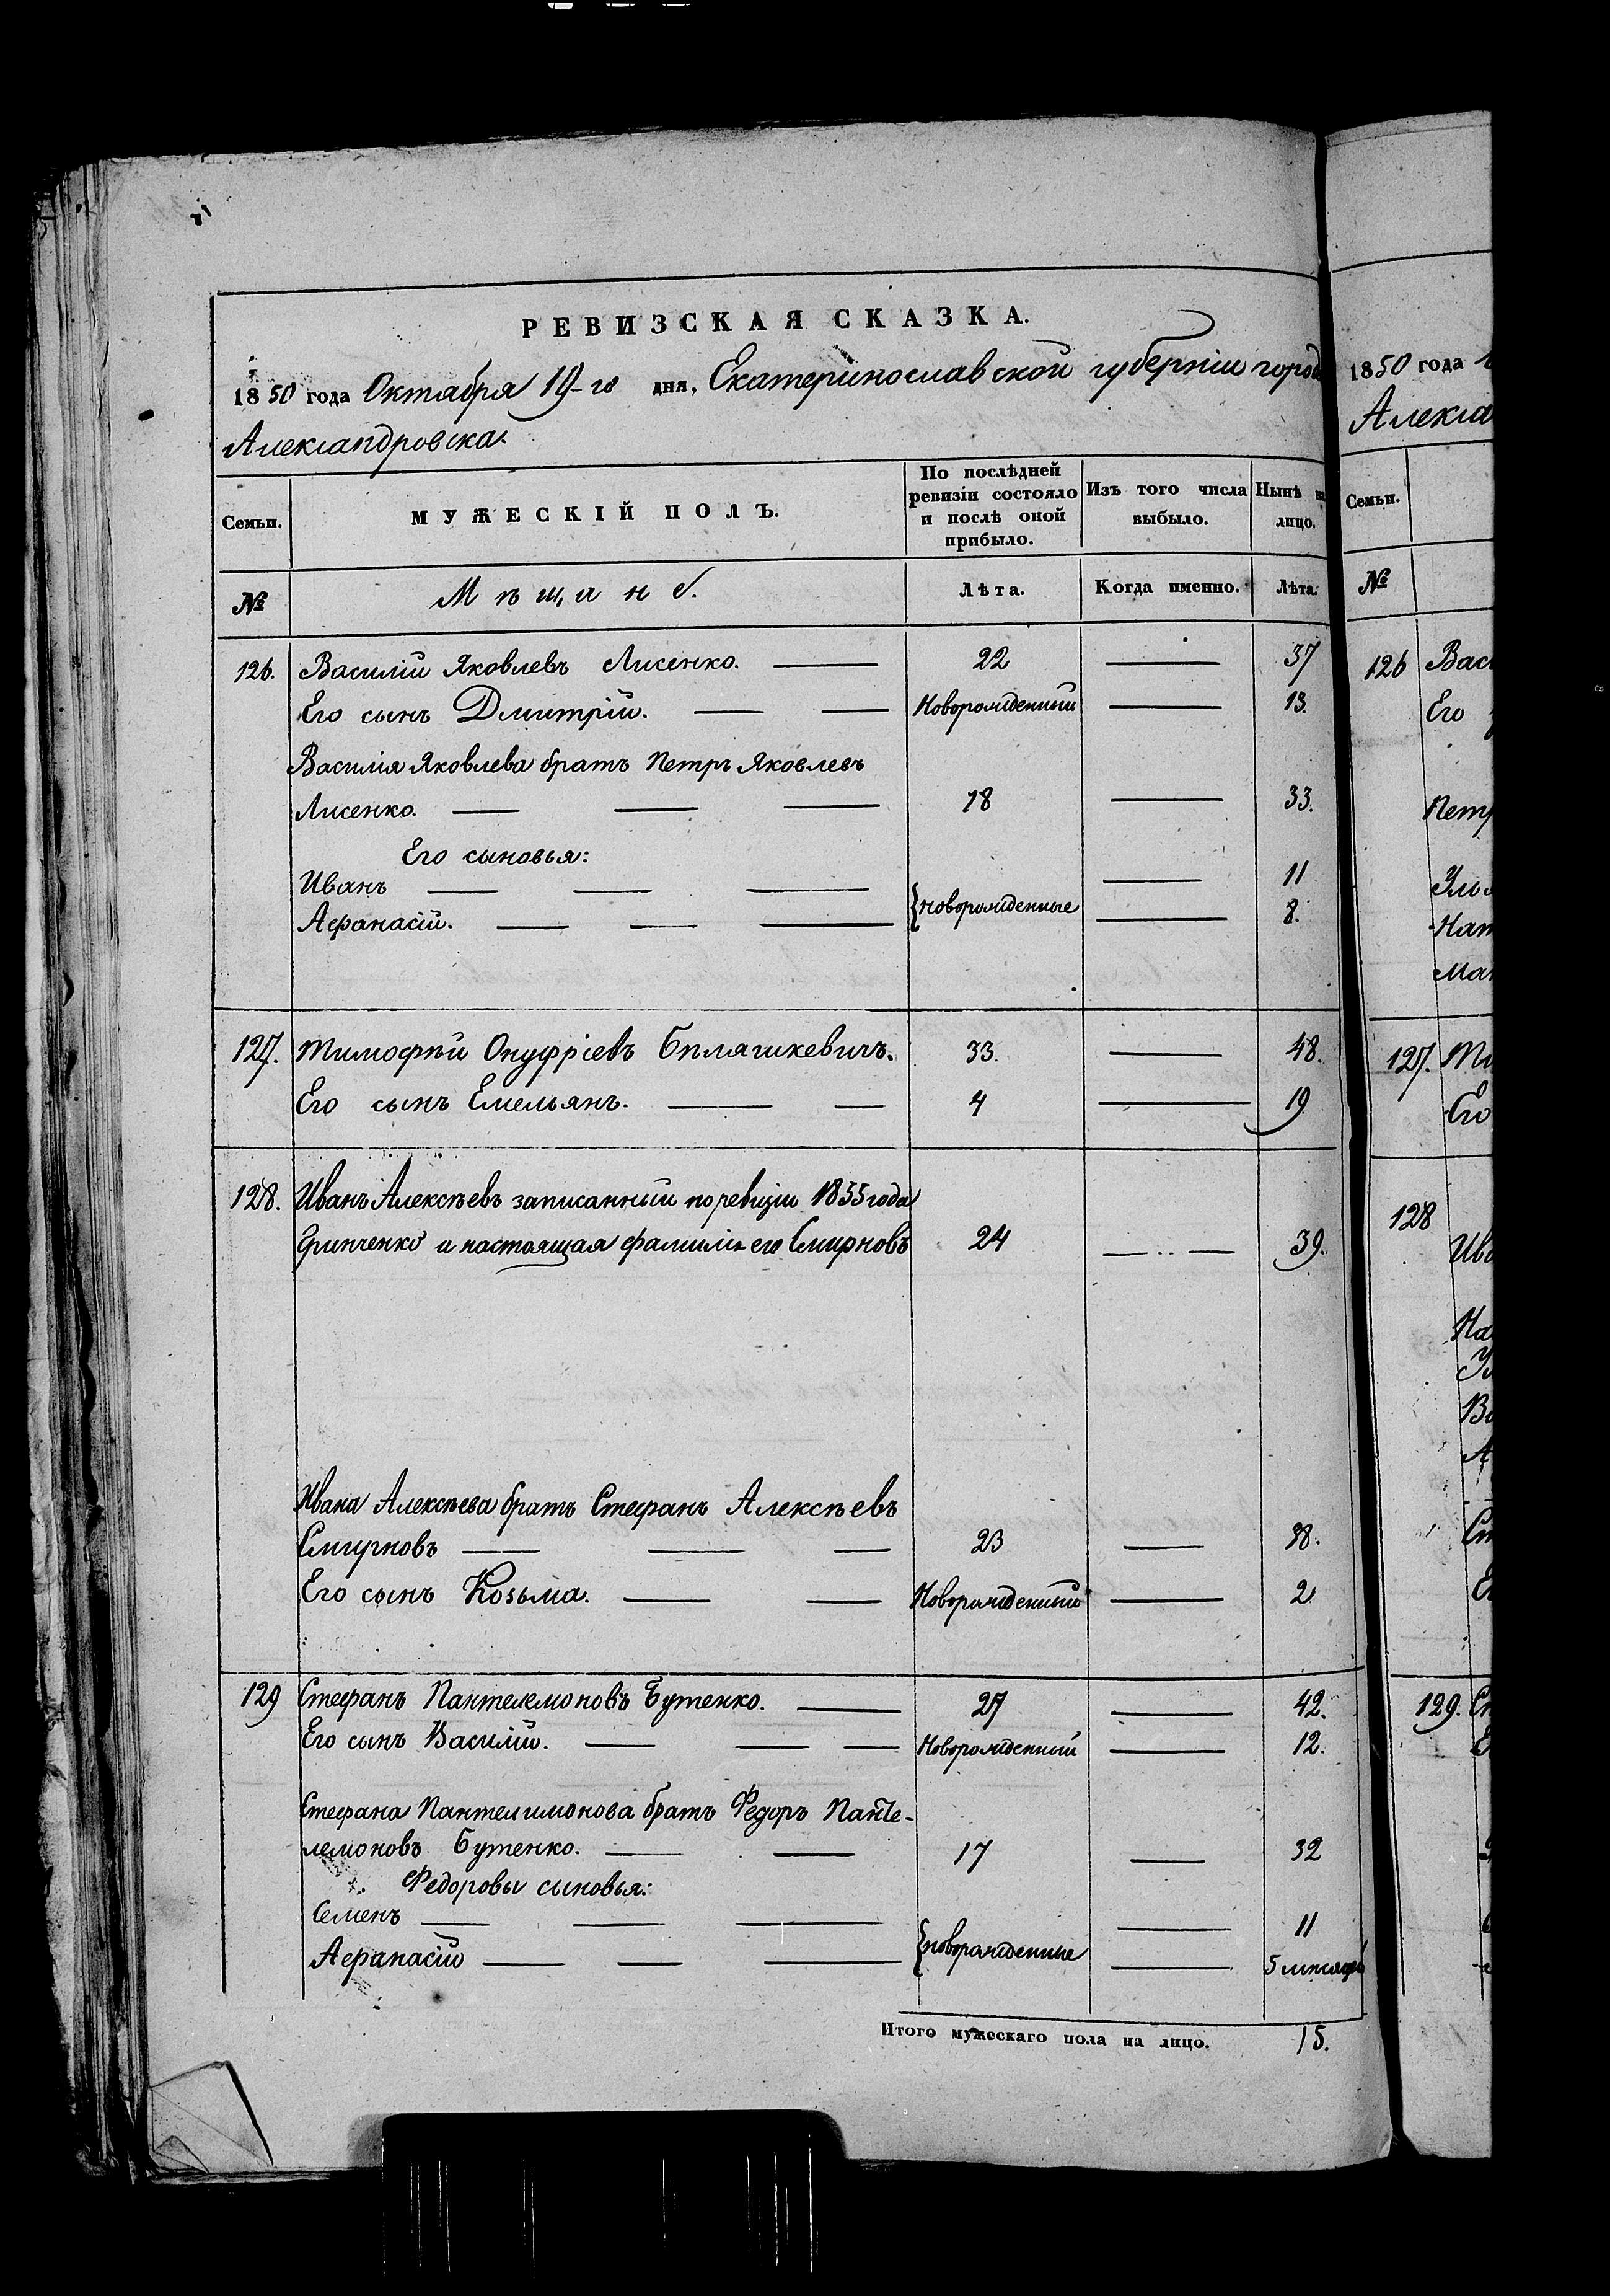 РЕВИЗСКАЯ СКАЗКА.
1850 года Октября 19-го дня, Екатеринославской губерніи города
Александровска.
Семьи.
МУЖЕСКІЙ ПОЛЪ.
По послѣдней ревизіи состояло и послѣ оной прибыло.
Изъ того числа выбыло.
Нынѣ на лицо.
№
Мѣщанѣ.
Лѣта.
Когда именно.
Лѣта.
126. Василій Яковлевъ Лисенко. — 22 — 37
Его сынъ Дмитрій. — — Новорожденный — 13.
Василія Яковлева братъ Петръ Яковлевъ
Лисенко. — — — 18 — 33.
Его сыновья:
Иванъ — — — — 11
Афанасій. — — — {новорожденные — 8.
127. Тимофѣй Онуфріевъ 33. — 48.
Его сынъ Емельянъ. — — 4 — 19
128. Иванъ Алексѣевъ записанный по ревизіи 1835 года
Гринченко а настоящая фамилія его Смирновъ 24 — 39.
Ивана Алексѣева братъ Стефанъ Алексѣевъ
Смирновъ — — — 23 — 38.
Его сынъ Козьма. — — Новорожденный — 2
129 Стефанъ Пантелемоновъ Бутенко. — 27 — 42.
Его сынъ Василій. — — — Новорожденный — 12.
Стефана Пантелимонова братъ Федоръ Панте-
лемоновъ Бутенко. — — 17 — 32
Федоровы сыновья:
Семенъ — — — — 11
Афанасій — — — {новорожденные — 5 мѣсяцей
Итого мужескаго пола на лицо. 15.
1850 года
Алекса
Семьи.
№
126 Васи
Его
Петр
Улья
Нат
Мар
127. Ти
Его
128
Ива
На
Ва
Ст
Е
129. Ст